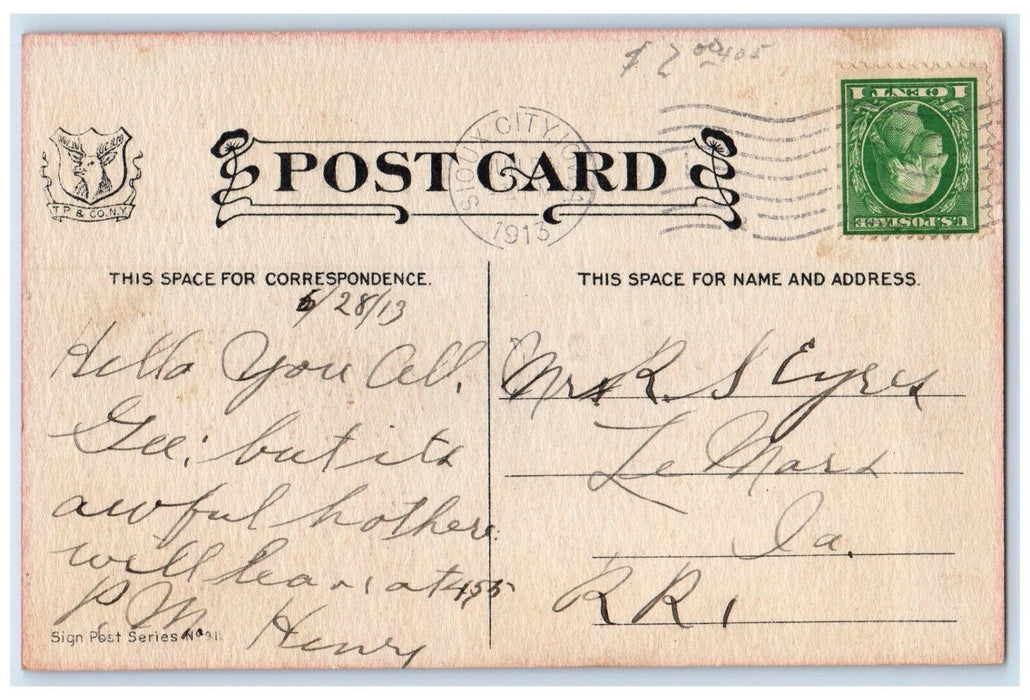 $ 2 00 405
1 CENT 1
U.S. POSTAGE
SIOUX CITY, IOWA
1913
POST CARD
T.P. & CO. N.Y.
THIS SPACE FOR CORRESPONDENCE.
THIS SPACE FOR NAME AND ADDRESS.
6/28/13
Hello You All.
Gee; but its
awful hot here.
will leave at 4.55
P.M. Henry
Sign Post Series No 21
Mrs R. S Eyres
Le Mars
Ia.
RR 1